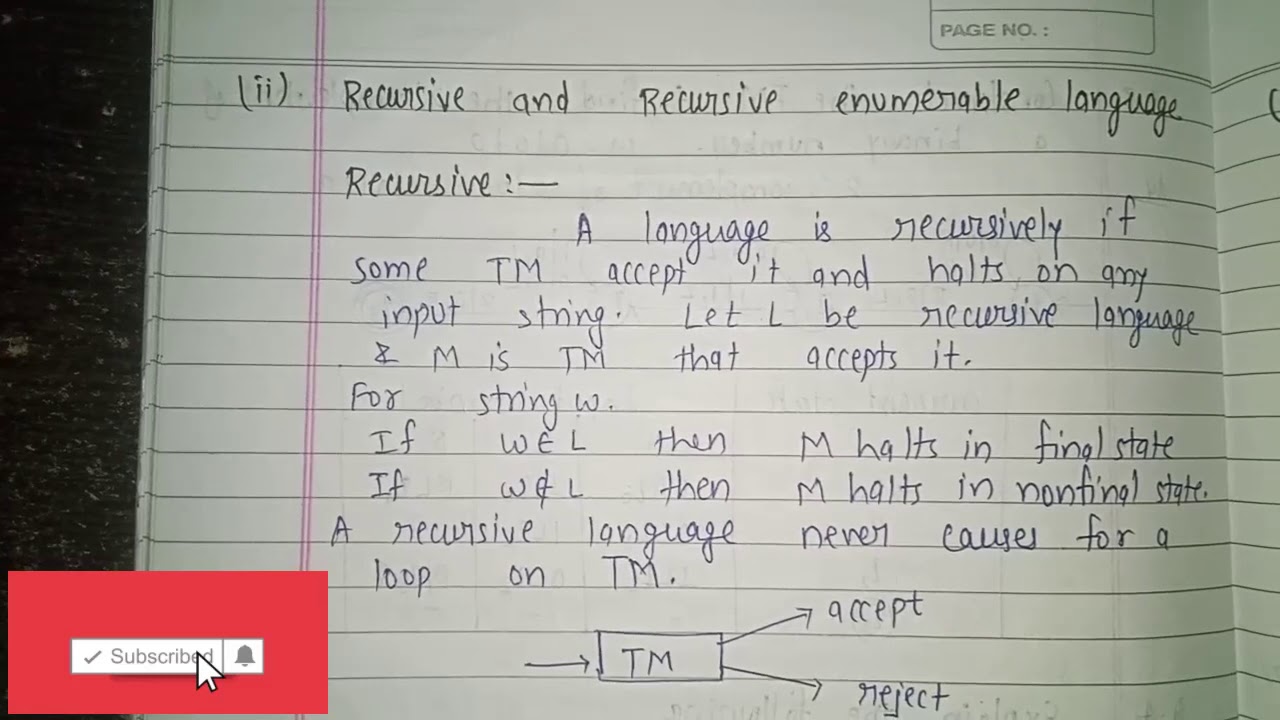 PAGE NO. :
(ii). Recursive and Recursive enumerable language
Recursive :—
A language is recursively if
some TM accept it and halts on any
input string. Let L be recursive language
& M is TM that accepts it.
For string w.
If w∈L then M halts in final state
If w∉L then M halts in nonfinal state.
A recursive language never causes for a
loop on TM.
accept
TM
reject
Subscribed